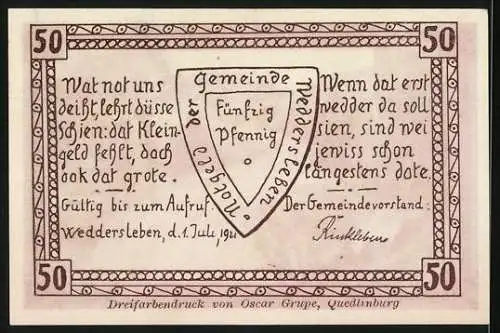 50
50
Wat not uns
deiht, lehrt düsse
Schien: dat Klein-
geld fehlt, doch
ook dat grote.
Gültig bis zum Aufruf.
Weddersleben, d. 1. Juli 1921
Notgeld der Gemeinde Weddersleben
Fünfzig
Pfennig
Wenn dat erst
wedder da soll
sien, sind wei
jewiss schon
längestens dote.
Der Gemeindevorstand:
Rinkleben
50
50
Dreifarbendruck von Oscar Grupe, Quedlinburg